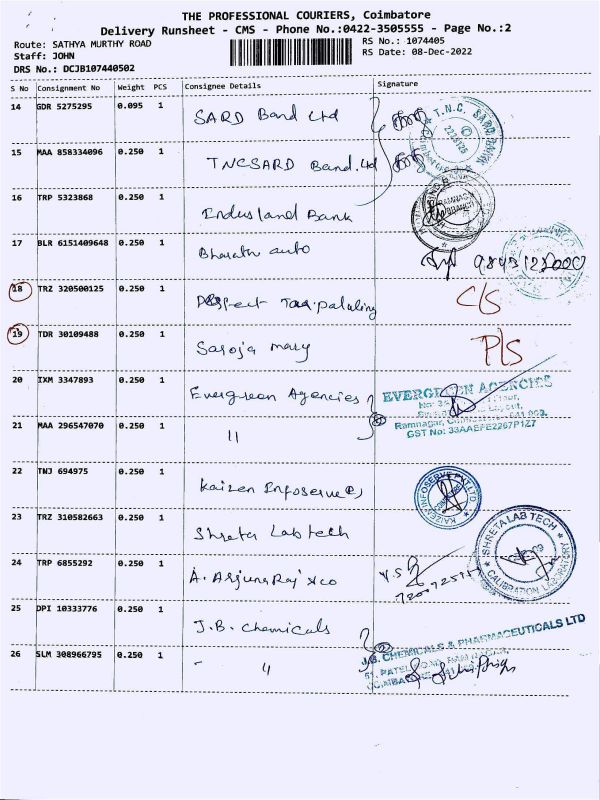 THE PROFESSIONAL COURIERS, Coimbatore
Delivery Runsheet - CMS - Phone No.:0422-3505555 - Page No.:2
Route: SATHYA MURTHY ROAD
Staff: JOHN
DRS No.: DCJB107440502
RS No.: 1074405
RS Date: 08-Dec-2022
S No Consignment No Weight PCS Consignee Details Signature
14 GDR 5275295 0.095 1 SARD Band Ltd
T.N.C. SARD
15 MAA 858334096 0.250 1 TNCSARD Band. Ltd
16 TRP 5323868 0.250 1 Indusland Bank
17 BLR 6151409648 0.250 1 Bharath auto
18 TRZ 320500125 0.250 1 C/S
19 TDR 30109488 0.250 1 Saroja mary P/S
20 IXM 3347893 0.250 1 Evergreen Agencies
EVERGREEN AGENCIES
21 MAA 296547070 0.250 1 11
Ramnagar,
GST No: 33AAEFE2267P1Z7
22 TNJ 694975 0.250 1 Kaizen Infoserve (P)
KAIZEN INFOSERVE PVT LTD
23 TRZ 310582663 0.250 1 Shreta Lab tech
SHRETA LAB TECH
CALIBRATION LABORATORY
24 TRP 6855292 0.250 1 A. Arjuna Raj & co
25 DPI 10333776 0.250 1 J.B. Chemicals
J.B. CHEMICALS & PHARMACEUTICALS LTD
26 SLM 308966795 0.250 1 - 11